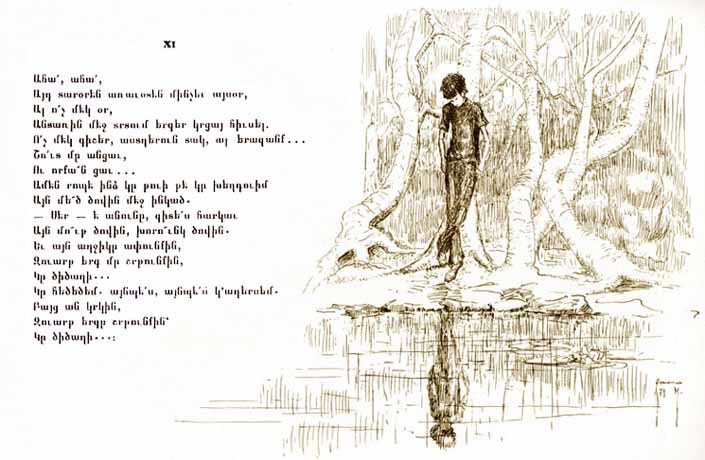 XI
Ահա՛, ահա՛,
Այդ տարօրէն առաւօտէն մինչեւ այսօր,
Ալ ո՛չ մէկ օր,
Անտառին մէջ տրտում երգեր կրցայ հիւսել.
Ո՛չ մէկ գիշեր, աստղերուն տակ, ալ երազանմ...
Շո՜ւտ մը անցաւ,
Ու որքա՜ն ցաւ...
Ամէն րոպէ ինծ կը թուի թէ կը խեղդուիմ
Այն մե՜ծ ծովին մէջ ինկած.
— Սէր — է անունը, գիտե՛ս հարկաւ
Այն մո՜ւթ ծովին, խորո՜ւնկ ծովին.
Եւ այն աղջիկը ափունքին,
Զուարթ երգ մը շրթունքին,
Կը ծիծաղի...
Կը հեծեծեմ. այնպէ՜ս, այնպէ՜ս կ'աղերսեմ.
Բայց ան կրկին,
Զուարթ երգը շրթունքին՝
Կը ծիծաղի...: